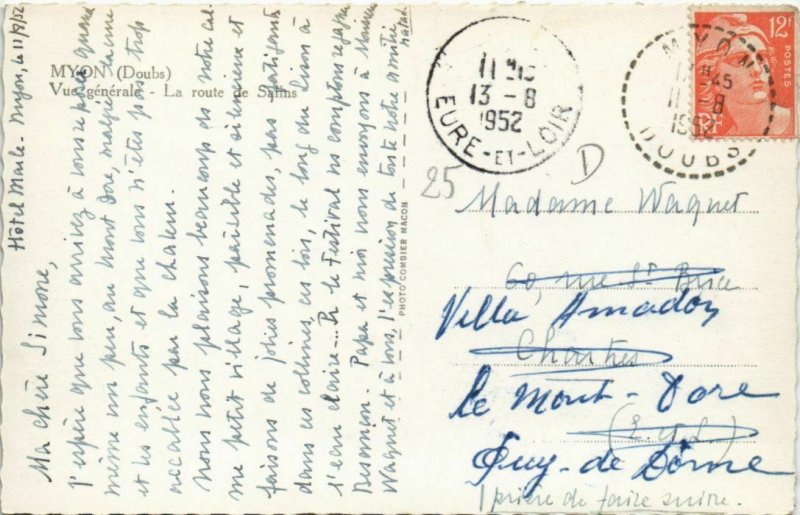 MYON (Doubs)
Vue générale - La route de Salins
Hôtel Marle - Myon, le 11/8/52
Ma chère Simone,
J'espère que vous arrivez à vous reposer quand
même un peu, au Mont Dore, malgré Jeanne
et les enfants et que vous n'êtes pas trop
accablée par la chaleur.
Nous nous plaisons beaucoup dans notre cal
me petit village, paisible et silencieux et
faisons de jolies promenades, pas fatigantes
dans ces collines, ces bois, le long du Lison à
l'eau claire... Pr le Festival nous comptons regagner
Besançon. Papa et moi nous envoyons à Monsieur
Wagnet et à vous, l'expression de toute notre amitié
PHOTO COMBIER MACON
11 H
13 - 8
1952
EURE-ET-LOIR
MYON
17 H 45
11 - 8
DOUBS
12F
POSTES
RF
25
D
Madame Wagnet
60, rue St Brice
Villa Amadon
Chartres
Le Mont-Dore
(E. & L.)
Puy-de Dôme
prière de faire suivre.